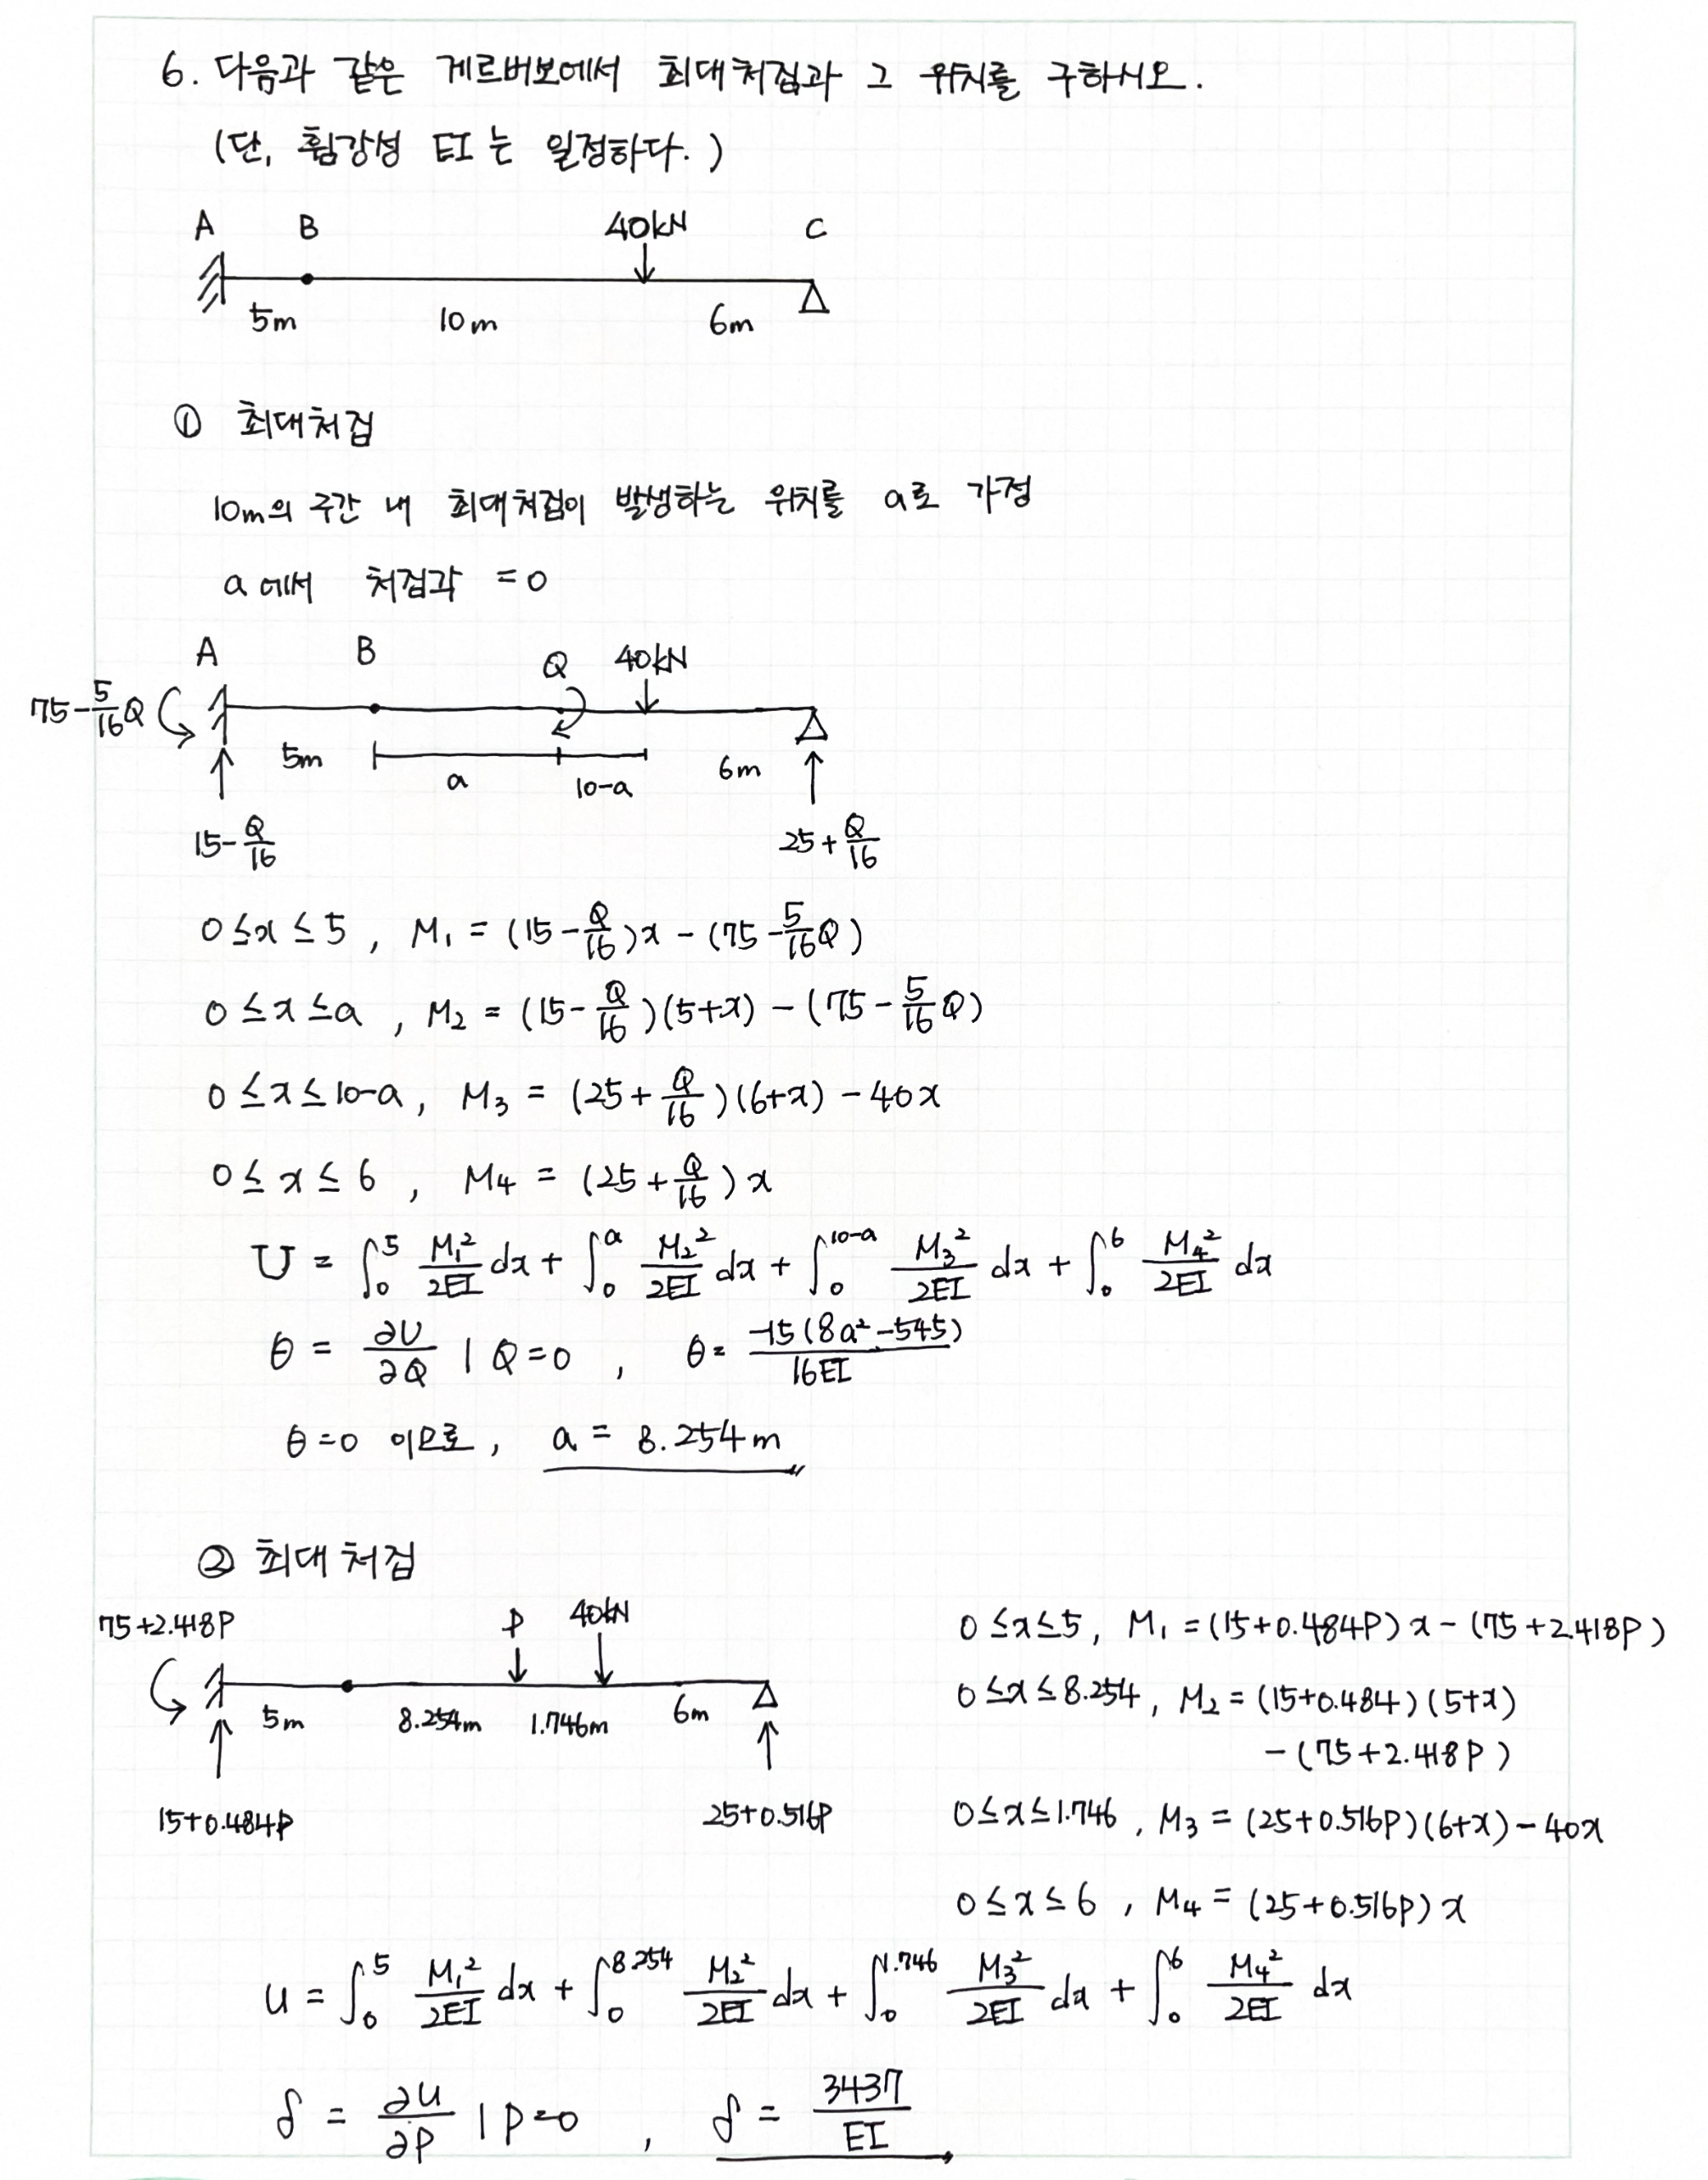 6. 다음과 같은 게르버보에서 최대처짐과 그 위치를 구하시오.
(단, 휨강성 EI는 일정하다.)
A B 40kN C
5m 10m 6m
① 최대처짐
10m의 구간 내 최대처짐이 발생하는 위치를 a로 가정
a에서 처짐각 = 0
A B Q 40kN
75-5/16Q
5m a 10-a 6m
15-Q/16 25+Q/16
0≤x≤5, M₁ = (15-Q/16)x - (75-5/16Q)
0≤x≤a, M₂ = (15-Q/16)(5+x) - (75-5/16Q)
0≤x≤10-a, M₃ = (25+Q/16)(6+x) - 40x
0≤x≤6, M₄ = (25+Q/16)x
U = ∫₀⁵ M₁²/2EI dx + ∫₀ᵃ M₂²/2EI dx + ∫₀¹⁰⁻ᵃ M₃²/2EI dx + ∫₀⁶ M₄²/2EI dx
θ = ∂U/∂Q | Q=0, θ = -15(8a²-545)/16EI
θ=0 이므로, a = 8.254m
② 최대처짐
75+2.418P P 40kN
5m 8.254m 1.746m 6m
15+0.484P 25+0.516P
0≤x≤5, M₁ = (15+0.484P)x - (75+2.418P)
0≤x≤8.254, M₂ = (15+0.484)(5+x)
-(75+2.418P)
0≤x≤1.746, M₃ = (25+0.516P)(6+x) - 40x
0≤x≤6, M₄ = (25+0.516P)x
u = ∫₀⁵ M₁²/2EI dx + ∫₀^8.254 M₂²/2EI dx + ∫₀^1.746 M₃²/2EI dx + ∫₀⁶ M₄²/2EI dx
δ = ∂u/∂P | P=0, δ = 3437/EI